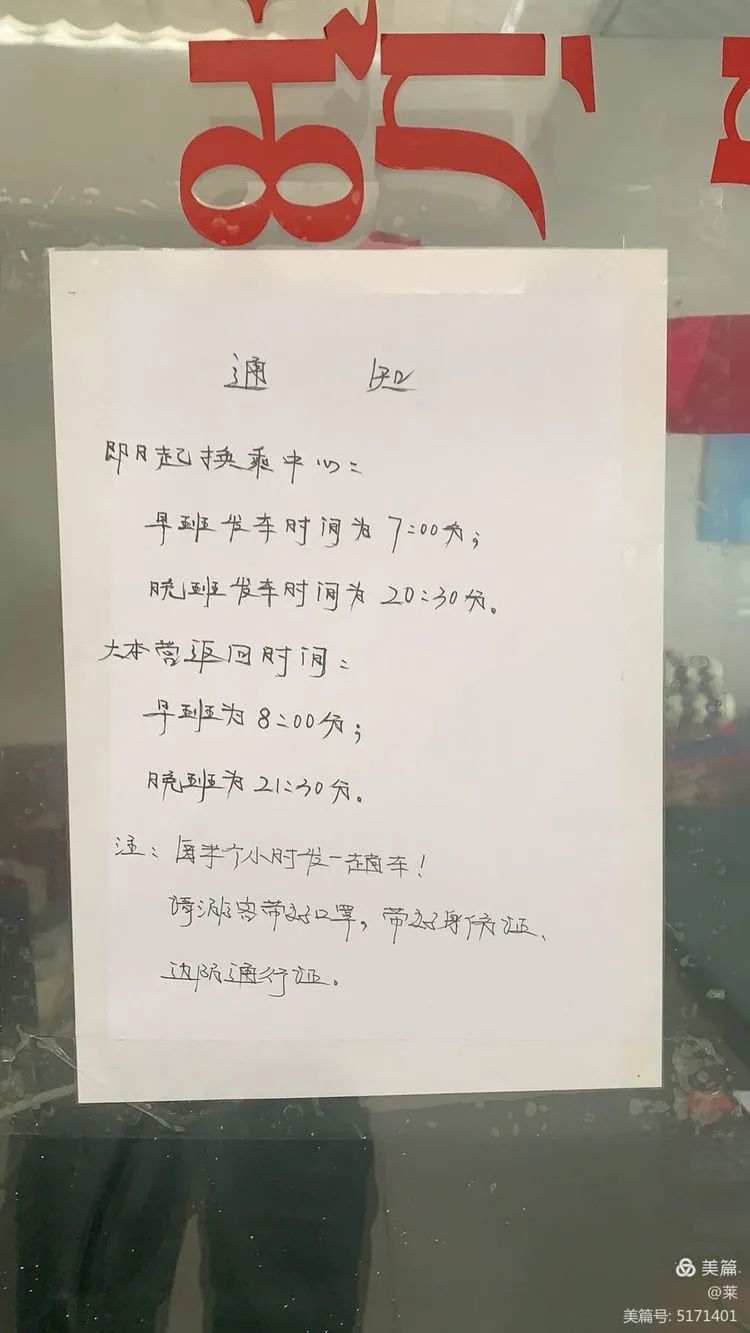 通 知
即日起换乘中心:
早班发车时间为 7:00分;
晚班发车时间为 20:30分。
大本营返回时间:
早班为 8:00分;
晚班为 21:30分。
注: 每半个小时发一趟车!
请游客带好口罩, 带好身份证、
边防通行证。
美篇
@莱
美篇号: 5171401